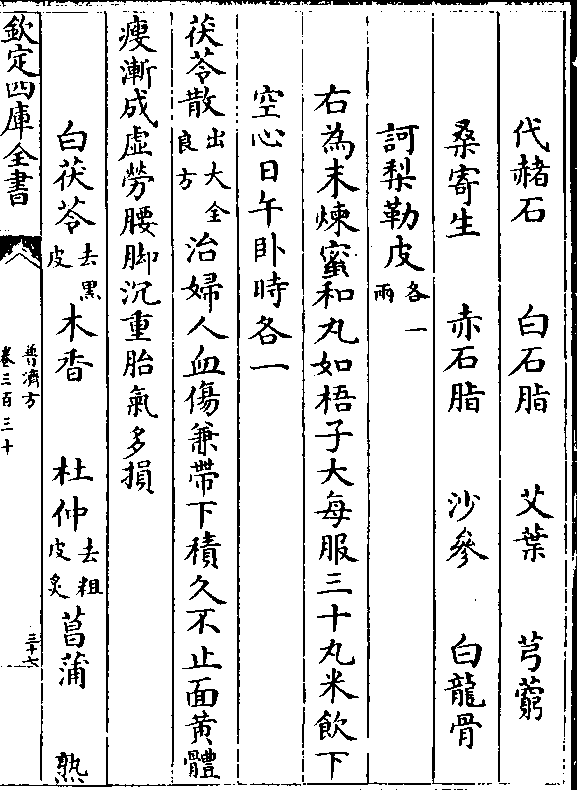 代赭石　白石脂　艾葉　芎藭
桑寄生　赤石脂　沙參　白龍骨
訶梨勒皮各一兩
右為末煉蜜和丸如梧子大每服三十丸米飲下
空心日午卧時各一
茯苓散出大全良方治婦人血傷兼帶下積久不止面黄體
瘦漸成虛勞腰脚沉重胎氣多損
白茯苓去黑皮　木香　杜仲去粗皮炙　菖蒲　熟
欽定四庫全書
普濟方
卷三百三十
三十六